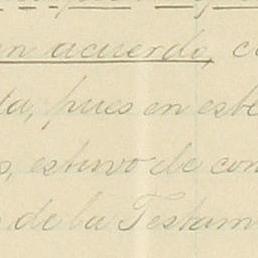 un acuerdo, c
ta, pues en este
s, estuvo de con
de la Testam